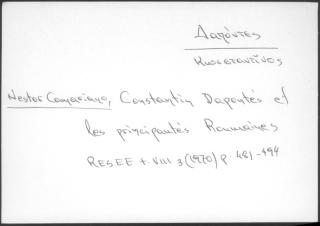 Δαπόντες
Κωνσταντῖνος
Nestor Camariano, Constantin Dapontès et
les principautés Roumaines
RESEE t. VIII 3 (1970) p. 481-494